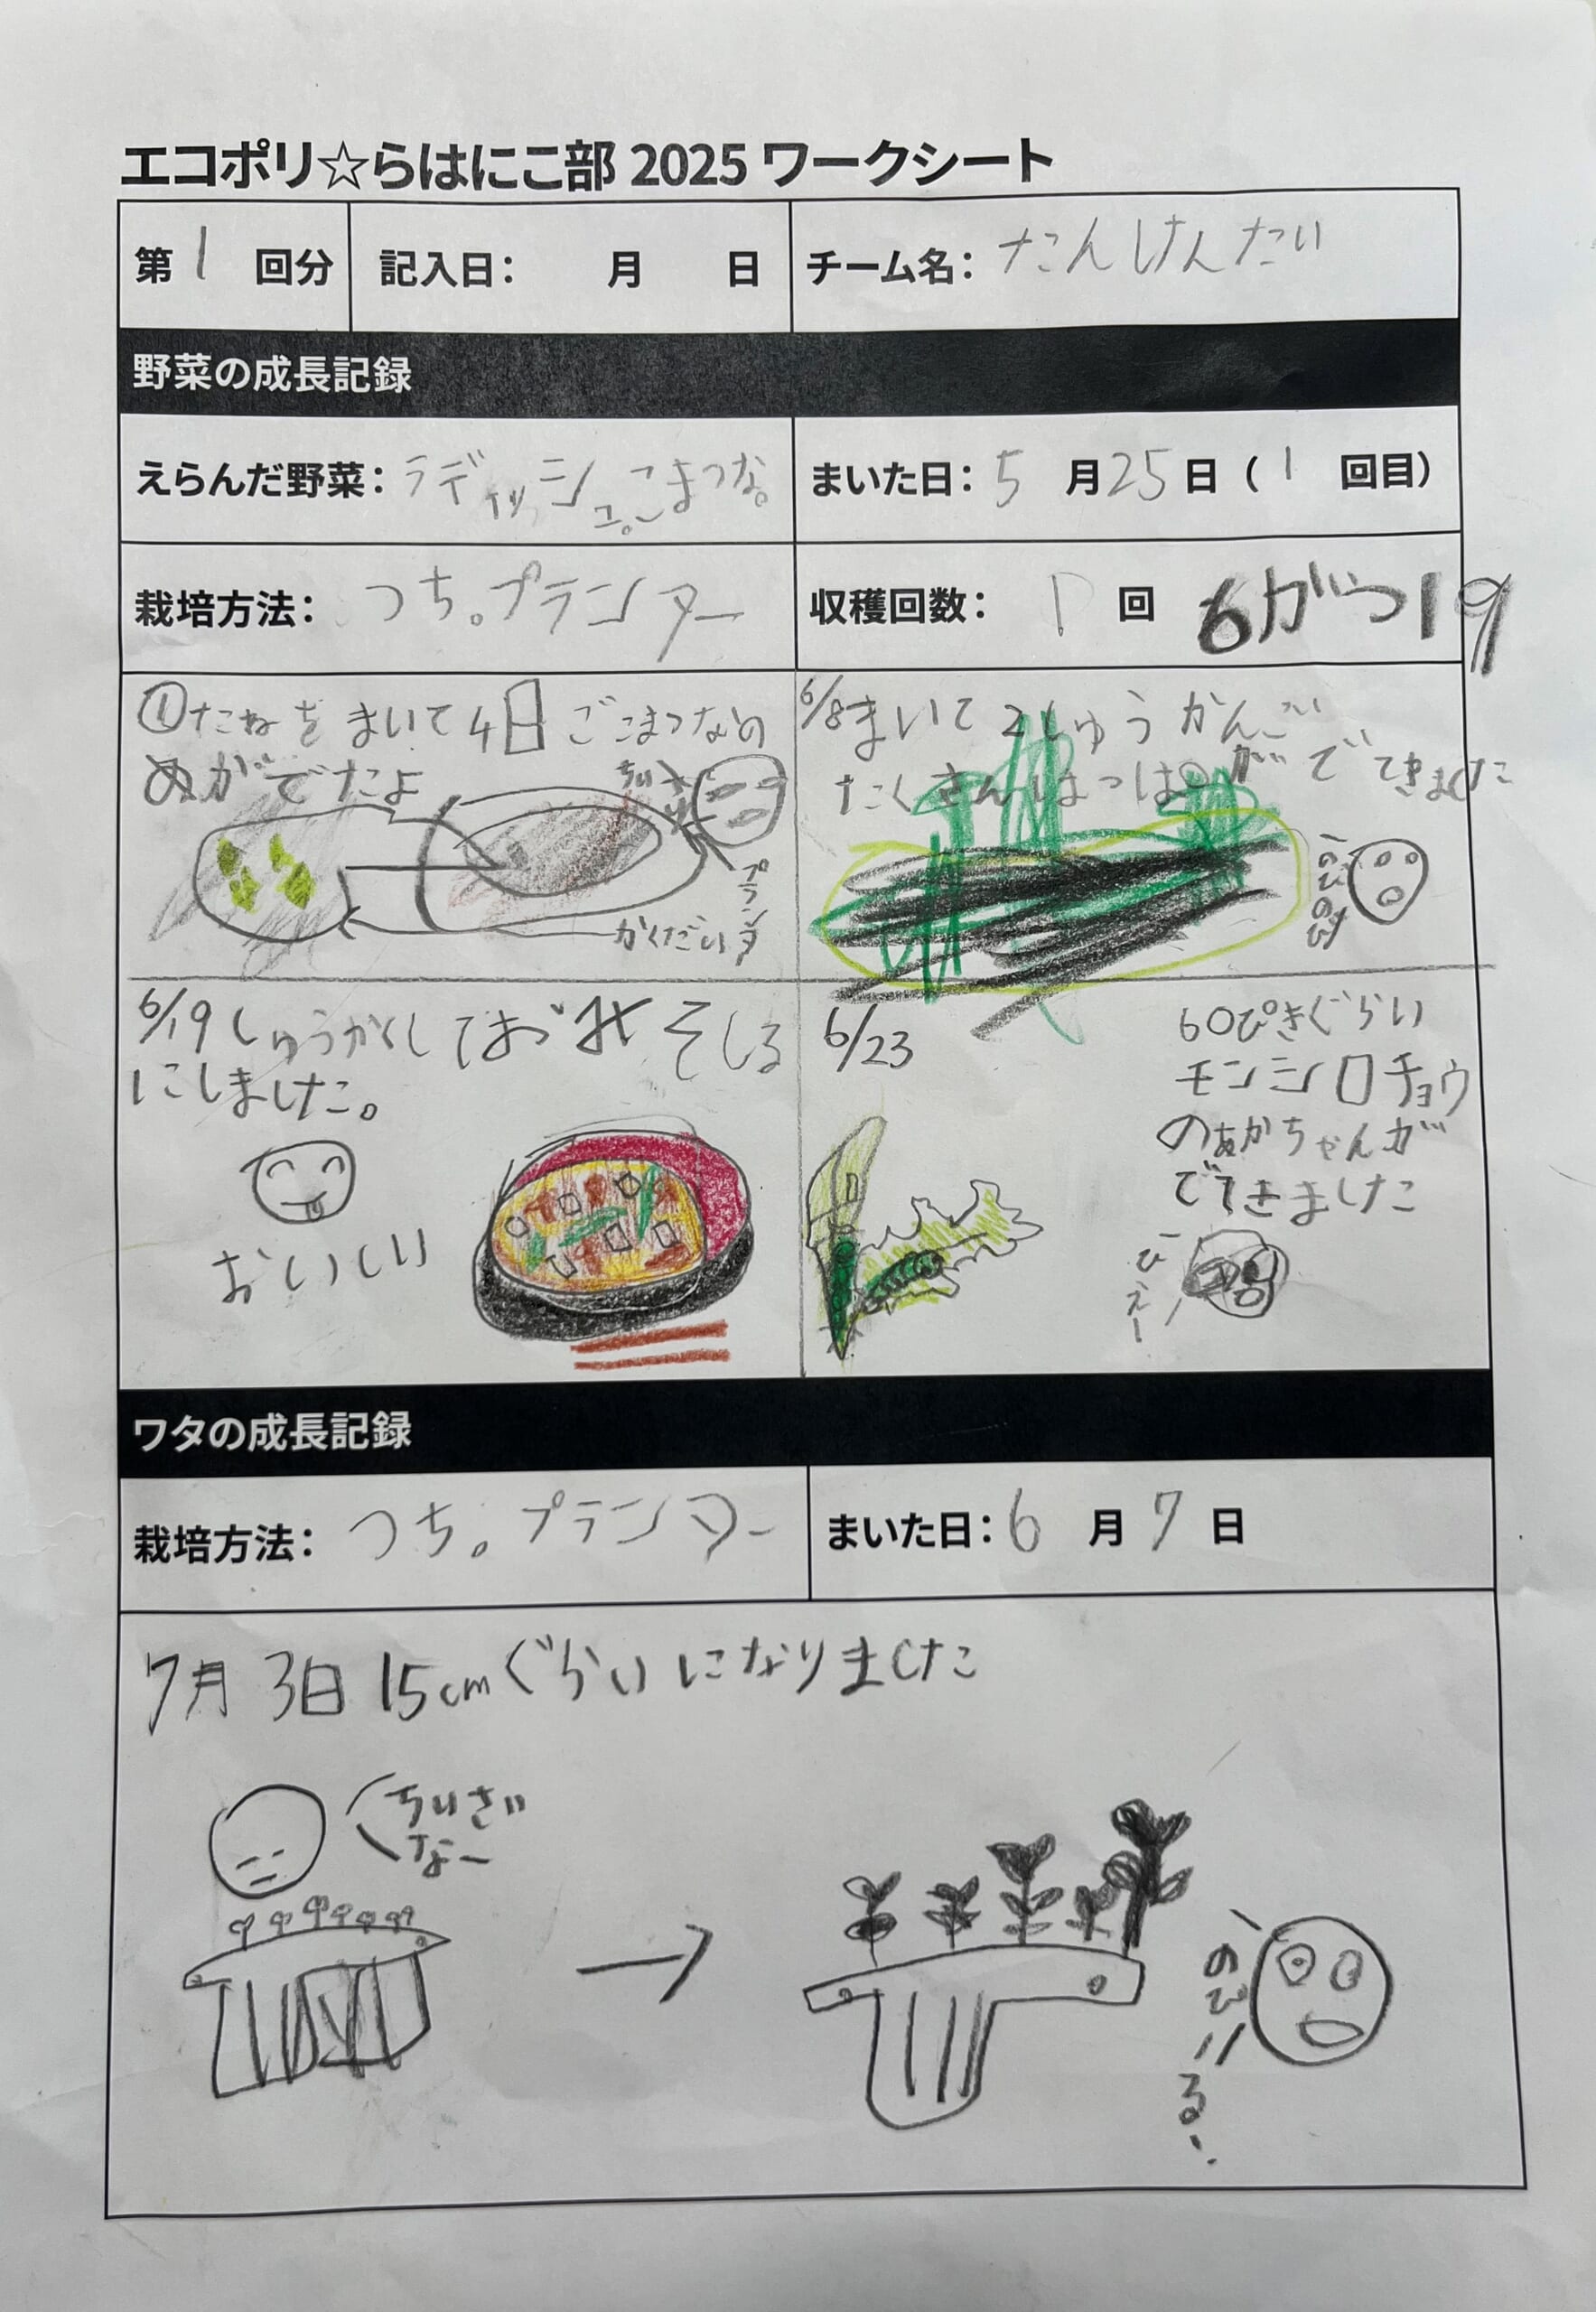 エコポリ☆らはにこ部 2025 ワークシート
第1回分 記入日: 月 日 チーム名: たんけんたい
野菜の成長記録
えらんだ野菜: ラディッシュ。こまつな。 まいた日: 5月25日(1回目)
栽培方法: つち。プランター 収穫回数: 1回 6がつ19
①たねをまいて4日ごこまつなの
めがでたよ
ちいさい
プランタ
かくだい
6/8まいて2しゅうかんご
たくさんはっぱがでてきました
のびのび
6/19しゅうかくしておみそしる
にしました。
おいしい
6/23
60ぴきぐらい
モンシロチョウ
のあかちゃんが
でてきました
ひえー
ワタの成長記録
栽培方法: つち。プランター まいた日: 6月7日
7月3日15cmぐらいになりました
ちいさい
なー
のびーる